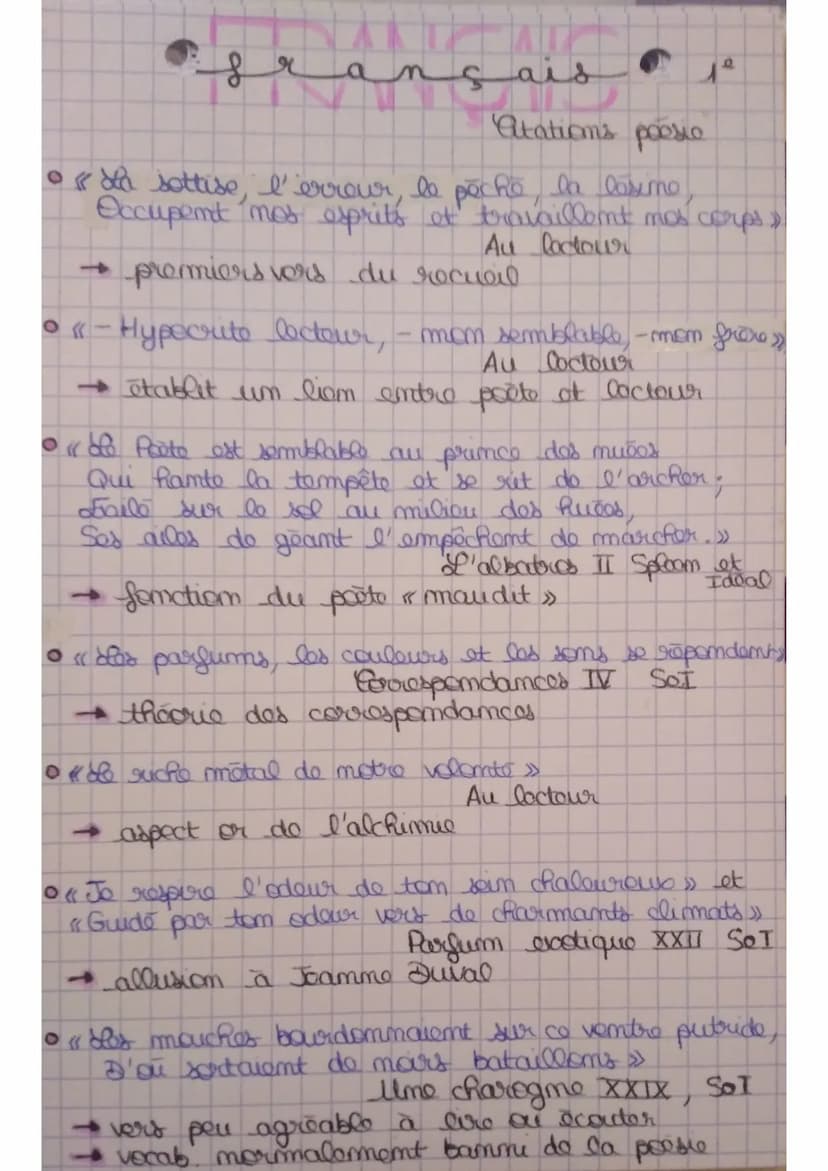 FRANÇAIS
français 1e
Citations poésie
« La sottise, l'erreur, le péché, la lésine,
Occupent nos esprits et travaillent nos corps »
Au lecteur
→ premiers vers du recueil
« - Hypocrite lecteur, - mon semblable, - mon frère »
Au lecteur
→ établit un lien entre poète et lecteur
« Le Poète est semblable au prince des nuées
Qui hante la tempête et se rit de l'archer ;
Exilé sur le sol au milieu des huées,
Ses ailes de géant l'empêchent de marcher. »
L'albatros II Spleen et
Idéal
→ fonction du poète « maudit »
« Les parfums, les couleurs et les sons se répondent »
Correspondances IV SeI
→ théorie des correspondances
« Le riche métal de notre volonté »
Au lecteur
→ aspect or de l'alchimie
« Je respire l'odeur de ton sein chaleureux » et
« Guidé par ton odeur vers de charmants climats »
Parfum exotique XXII SeI
→ allusion à Jeanne Duval
« Les mouches bourdonnaient sur ce ventre putride,
D'où sortaient de noirs bataillons »
Une charogne XXIX, SeI
→ vers peu agréable à lire ou écouter
→ vocab. normalement banni de la poésie